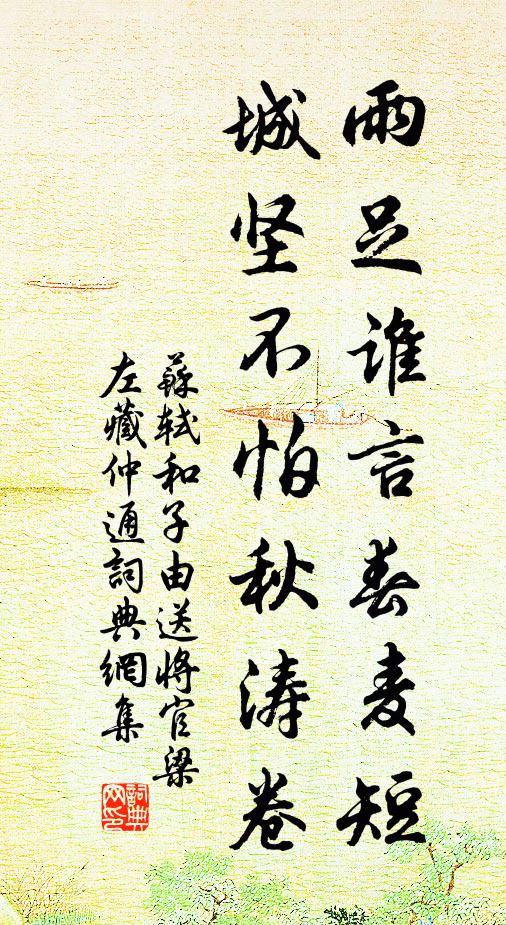 雨足谁言春麦短
城坚不怕秋涛卷
蘇轼和子由送將官梁
左藏仲通詞典網集
詞典网印